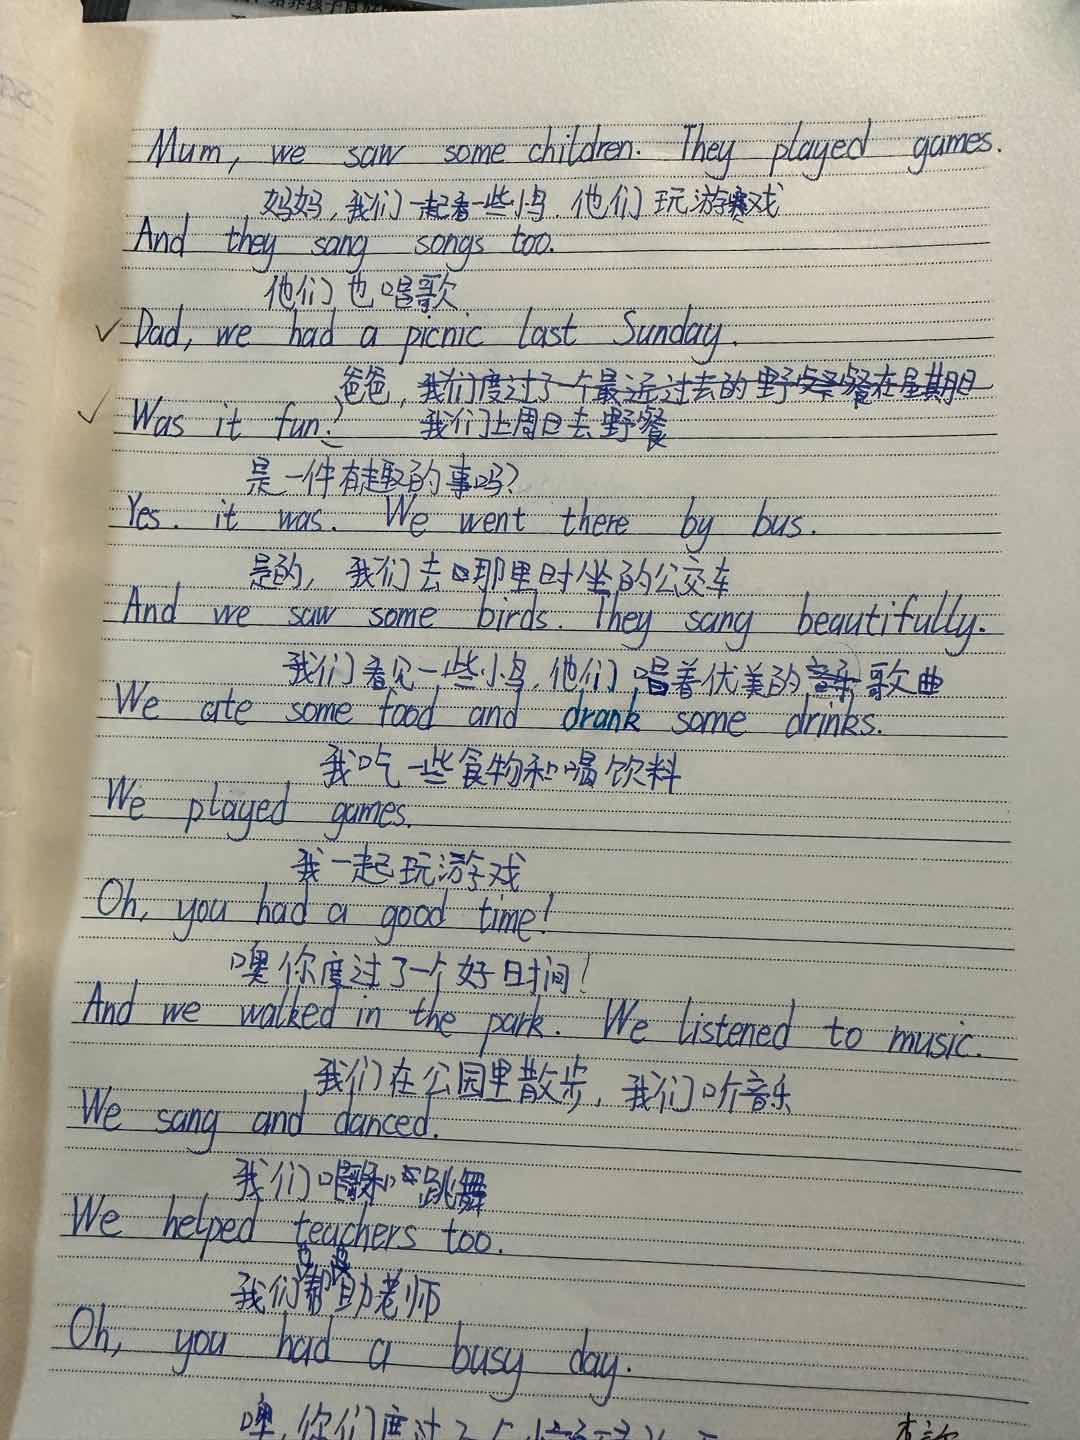 Mum, we saw some children. They played games.
妈妈,我们一起看一些小鸟.他们玩游戏
And they sang songs too.
他们也唱歌
Dad, we had a picnic last Sunday.
爸爸,我们度过了一个最近过去的野餐在星期日
Was it fun? 我们上周日去野餐
是一件有趣的事吗?
Yes. it was. We went there by bus.
是的,我们去那里时坐的公交车
And we saw some birds. They sang beautifully.
我们看见一些小鸟,他们唱着优美的音乐歌曲
We ate some food and drank some drinks.
我吃一些食物和喝饮料
We played games.
我一起玩游戏
Oh, you had a good time!
噢你度过了一个好时间!
And we walked in the park. We listened to music.
我们在公园里散步,我们听音乐
We sang and danced.
我们唱歌和跳舞
We helped teachers too.
我们帮助老师
Oh, you had a busy day.
噢,你们度过了